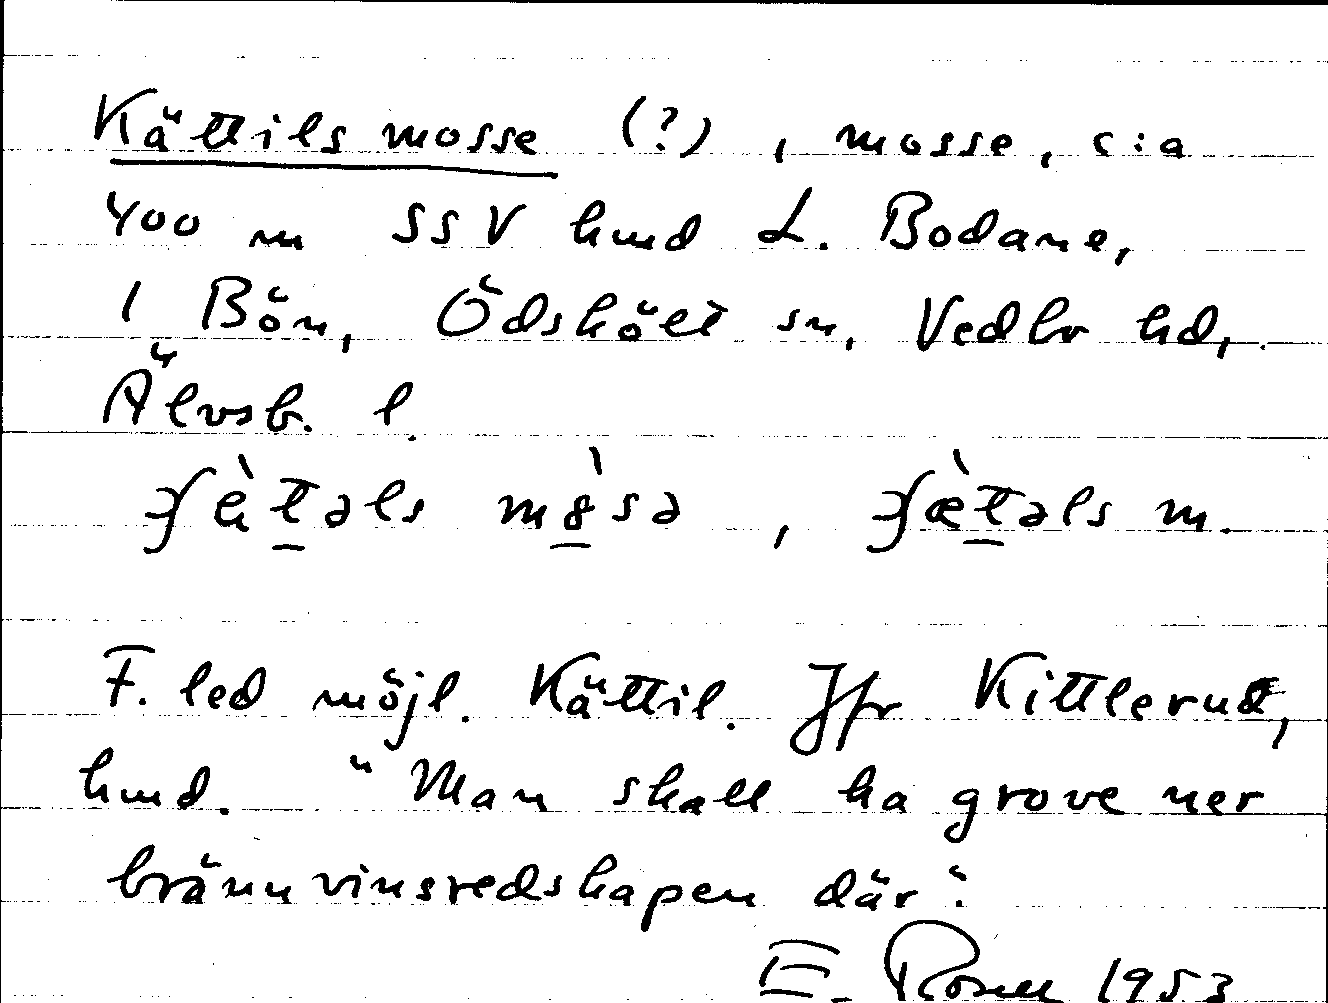 Kättils mosse (?), mosse, c:a
400 m SSV hmd L. Bodane,
1 Bön, Ödskölt sn, Vedbo hd,
Älvsb. l.
m.
F. led möjl. Kättil. Jfr Kittlerud,
hmd. "Man skall ha grove ner
brännvinsredskapen där".
E. Rosell 1953